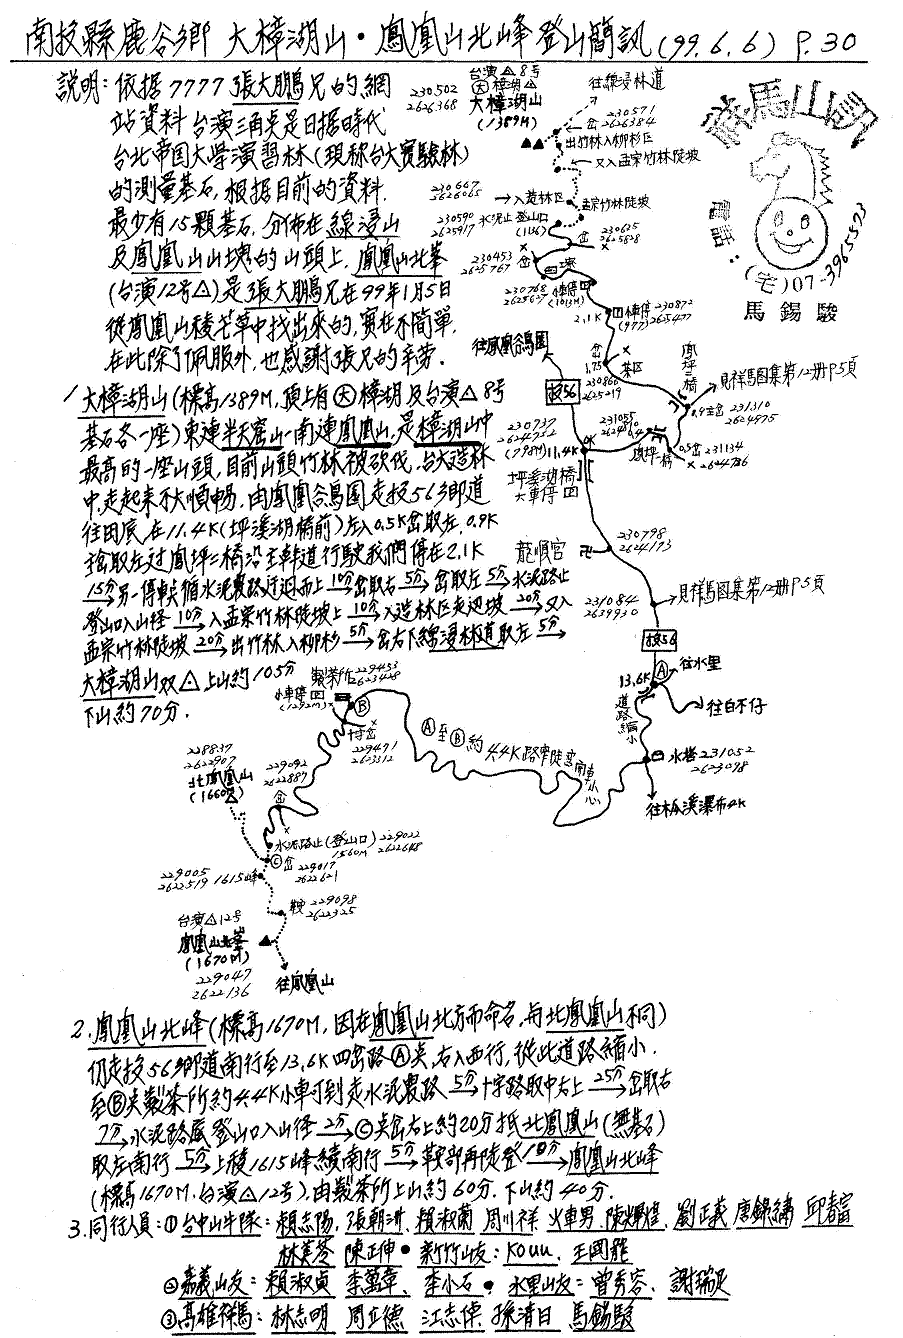 南投縣鹿谷鄉 大樟湖山·鳳凰山北峰登山簡訊(99.6.6) P.30
說明:依据7777張大鵬兄的網
站資料 台演三角点是日据時代
台北帝国大學演習林(現称台大實驗林)
的測量基石,根据目前的資料.
最少有15顆基石.分佈在線浸山
及鳳凰山山塊的山頭上.鳳凰山北峯
(台演12号△)是張大鵬兄在99年1月5日
從鳳凰山稜芒草中找出來的,實在不簡單.
在此除了佩服外,也感謝張兄的辛劳.
祥馬山訊
電話:(宅)07-3965573
馬錫駿
台演△8号
㊅樟湖△
大樟湖山
(1389M)
230502
2626368
往線浸林道
岔 230571
2626384
出竹林入柳杉区
又入孟宗竹林陡坡
230667
2626065
入造林区
孟宗竹林陡坡
230590
2625917
水泥止 登山口
岔 230625
2625828
230453
2625767
岔
230768
2625627
小車停
(1013M)
2.1K
車停 230872
(977) 2625477
往鳳凰谷鳥園
岔
1.75
230866
2625219
茶区
鳳坪二橋
見祥馬圖集第12册P5頁
0.9K岔 231310
2624975
投56
230737
2624752
(798M)
11.4K
0K
231055
2624816
鳳坪一橋
0.5岔 231134
2624786
坪溪湖橋
大車停
龍順宮
230798
2624173
231084
2639930
見祥馬図集第12册P5頁
投56
13.6K
Ⓐ
往水里
往白不仔
道路縮小
水塔 231052
2623098
往瓜溪瀑布4K
1.大樟湖山(標高1389M,頂上有㊅樟湖及台演△8号
基石各一座)東連半天寮山-南連鳳凰山,是樟湖山中
最高的一座山頭,目前山頭竹林被砍伐,台大造林
中,走起來不大順暢,由鳳凰谷鳥園走投56鄉道
往田底,在11.4K(坪溪湖橋前)左入0.5K岔取左,0.9K
接取左过鳳坪二橋沿主幹道行駛我們停在2.1K
15分→另一停車点循水泥農路迂迴而上10分→岔取右5分→岔取左5分→水泥路止
登山口入山徑10分→入孟宗竹林陡坡上10分→入造林区走迎坡20分→又入
孟宗竹林陡坡20分→出竹林入柳杉5分→岔右下線浸林道取左5分→
大樟湖山双△上山約105分
下山約70分.
製茶所 229453
2623428
小車停
(1292M)
Ⓑ
十字岔
229471
2623312
Ⓐ至Ⓑ約4.4K路窄陡彎開車小心
228837
2622907
北鳳凰山
(1660M)
229092
2622887
岔
水泥路止(登山口) 229022
1560M 2622648
Ⓒ岔
229017
2622621
229005
2622519 1615峰
鞍 229098
2622325
台演△12号
鳳凰山北峯
(1670M)
229047
2622136
往鳳凰山
2.鳳凰山北峰(標高1670M,因在鳳凰山北方而命名,与北鳳凰山不同)
仍走投56鄉道南行至13.6K四岔路Ⓐ点,右入西行,從此道路縮小.
至Ⓑ点製茶所約4.4K小車可到走水泥農路5分→十字路取中右上25分→岔取右
7分→水泥路底登山口入山徑2分→Ⓒ点岔右上約20分抵北鳳凰山(無基石)
取左南行5分→上稜1615峰續南行5分→鞍部再陡登10分→鳳凰山北峰
(標高1670M.台演△12号).由製茶所上山約60分.下山約40分.
3.同行人員:①台中山牛隊:賴志陽.張朝洲.賴淑蘭 周川祥 火車男.陳輝煌.劉正義 唐錦繡 邱春富
林美蓉 陳正伸·新竹山友:KOUU.王國龍
②嘉義山友=賴淑貞 李萬章.李小石·水里山友=曾秀容.謝瑞民
③高雄祥馬:林志明 周立德 江志偉.孫清日 馬錫駿